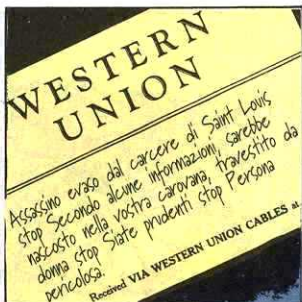 WESTERN
UNION
Assassino evaso dal carcere di Saint Louis
stop Secondo alcune informazioni, sarebbe
nascosto nella vostra carovana, travestito da
donna stop Siate prudenti stop Persona
pericolosa.
Received VIA WESTERN UNION CABLES at